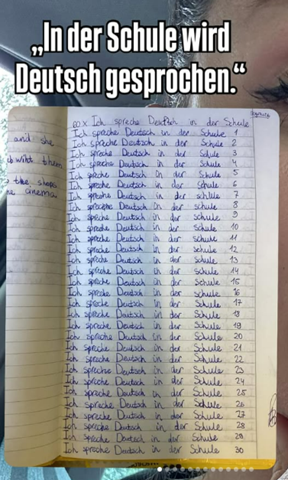 „In der Schule wird
Deutsch gesprochen.“
60 x Ich spreche Deutsch in der Schule
and she
Ich spreche Deutsch in der Schule 1
Ich spreche Deutsch in der Schule 2
Ich spreche Deutsch in der Schule 3
Ich spreche Deutsch in der Schule 4
the shop
Ich spreche Deutsch in der Schule 5
cinema
Ich spreche Deutsch in der Schule 6
Ich spreche Deutsch in der Schule 7
Ich spreche Deutsch in der Schule 8
Ich spreche Deutsch in der Schule 9
Ich spreche Deutsch in der Schule 10
Ich spreche Deutsch in der Schule 11
Ich spreche Deutsch in der Schule 12
Ich spreche Deutsch in der Schule 13
Ich spreche Deutsch in der Schule 14
Ich spreche Deutsch in der Schule 15
Ich spreche Deutsch in der Schule 16
Ich spreche Deutsch in der Schule 17
Ich spreche Deutsch in der Schule 18
Ich spreche Deutsch in der Schule 19
Ich spreche Deutsch in der Schule 20
Ich spreche Deutsch in der Schule 21
Ich spreche Deutsch in der Schule 22
Ich spreche Deutsch in der Schule 23
Ich spreche Deutsch in der Schule 24
Ich spreche Deutsch in der Schule 25
Ich spreche Deutsch in der Schule 26
Ich spreche Deutsch in der Schule 27
Ich spreche Deutsch in der Schule 28
Ich spreche Deutsch in der Schule 29
Ich spreche Deutsch in der Schule 30